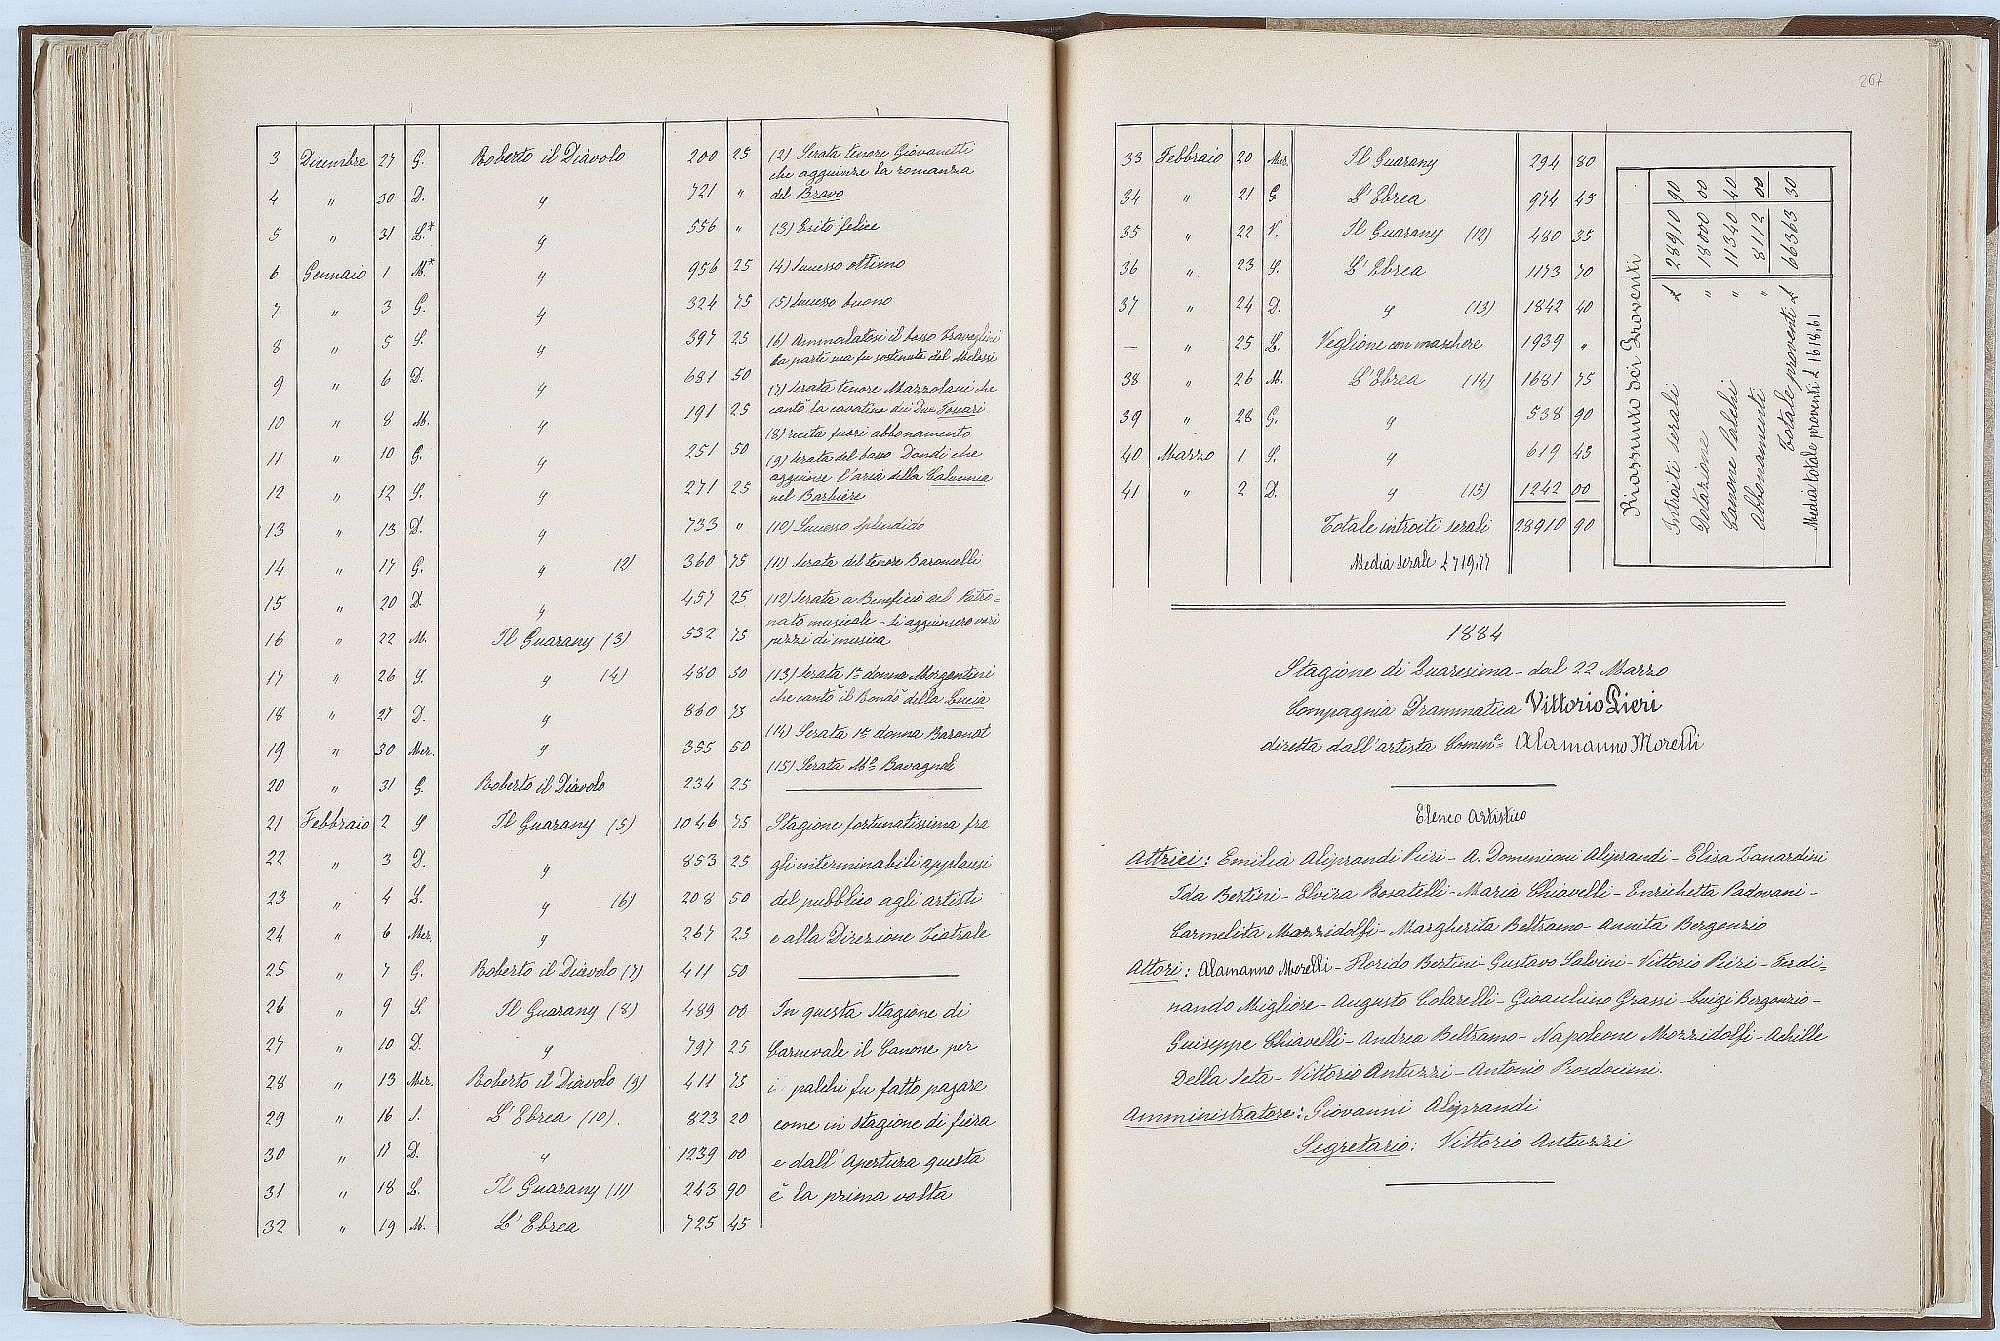 3 Dicembre 27 G. Roberto il Diavolo 200 25
4 " 30 D. " 721 "
5 " 31 L.* " 556 "
6 Gennaio 1 M.* " 956 25
7 " 3 G. " 324 75
8 " 5 S. " 397 25
9 " 6 D. " 681 50
10 " 8 M. " 191 25
11 " 10 G. " 251 50
12 " 12 S. " 271 25
13 " 13 D. " 733 "
14 " 17 G. " (2) 360 75
15 " 20 D. " 457 25
16 " 22 M. Il Guarany (3) 532 75
17 " 26 S. " (4) 480 50
18 " 27 D. " 860 75
19 " 30 Mer. " 355 50
20 " 31 G. Roberto il Diavolo 234 25
21 Febbraio 2 S Il Guarany (5) 1046 75
22 " 3 D. " 853 25
23 " 4 L. " (6) 208 50
24 " 6 Mer. " 267 25
25 " 7 G. Roberto il Diavolo (7) 411 50
26 " 9 S. Il Guarany (8) 489 00
27 " 10 D. " 797 25
28 " 13 Mer. Roberto il Diavolo (9) 411 75
29 " 16 S. L'Ebrea (10). 823 20
30 " 17 D. " 1239 00
31 " 18 L. Il Guarany (11) 243 90
32 " 19 M. L'Ebrea 725 45
(2) Serata tenore Giovanetti
che aggiunse la romanza
del Bravo
(3) Esito felice
(4) Successo ottimo
(5) Successo buono
(6) Ammalatosi il basso Travaglini
la parte sua fu sostenuta dal Melossi
(7) Serata tenore Mazzolani che
cantò la cavatina dei Due Foscari
(8) recita fuori abbonamento
(9) Serata del basso Dondi che
aggiunse l'aria della Calunnia
nel Barbiere
(10) Successo splendido
(11) Serata del tenore Baroncelli
(12) Serata a Beneficio del Patro-
nato musicale - Si aggiunsero vari
pezzi di musica
(13) Serata 1ª donna Morgantini
che cantò il Rondò della Lucia
(14) Serata 1ª donna Baronat
(15) Serata Mº Bavagnoli
Stagione fortunatissima fra
gli interminabili applausi
del pubblico agli artisti
e alla Direzione Teatrale
In questa Stagione di
Carnevale il Canone per
i palchi fu fatto pagare
come in stagione di fiera
e dall'Apertura questa
è la prima volta
207
33 Febbraio 20 Mer. Il Guarany 294 80
34 " 21 G L'Ebrea 974 45
35 " 22 V. Il Guarany (12) 480 35
36 " 23 S. L'Ebrea 1173 70
37 " 24 D. " (13) 1842 40
— " 25 L. Veglione con maschere 1939 "
38 " 26 M. L'Ebrea (14) 1681 75
39 " 28 G. " 538 90
40 Marzo 1 S. " 619 45
41 " 2 D. " (15) 1242 00
Totale introiti serali 28910 90
Media serale £ 719,77
Riassunto dei Proventi
Introiti serali £ 28910 90
Dotazione " 18000 00
Canone Palchi " 11340 40
Abbonamenti " 8112 00
Totale proventi £ 66363 30
Media totale proventi £ 1618,61
1884
Stagione di Quaresima - dal 22 Marzo
Compagnia Drammatica Vittorio Pieri
diretta dall'artista Comm.e Alamanno Morelli
Elenco Artistico
Attrici: Emilia Aliprandi Pieri - A. Domenioni Aliprandi - Elisa Zanardini
Ida Bertini - Elvira Bosatelli - Maria Chiavelli - Enrichetta Padovani -
Carmelita Mazzidolfi - Margherita Beltramo - Annita Bergonzio
Attori: Alamanno Morelli - Florido Bertini - Gustavo Salvini - Vittorio Pieri - Ferdi-
nando Migliore - Augusto Colarelli - Gioachino Grassi - Luigi Bergonzio -
Guiseppe Chiavelli - Andrea Beltramo - Napoleone Mozzidolfi - Achille
Della Seta - Vittorio Antuzzi - Antonio
Amministratore: Giovanni Aliprandi
Segretario: Vittorio Antuzzi